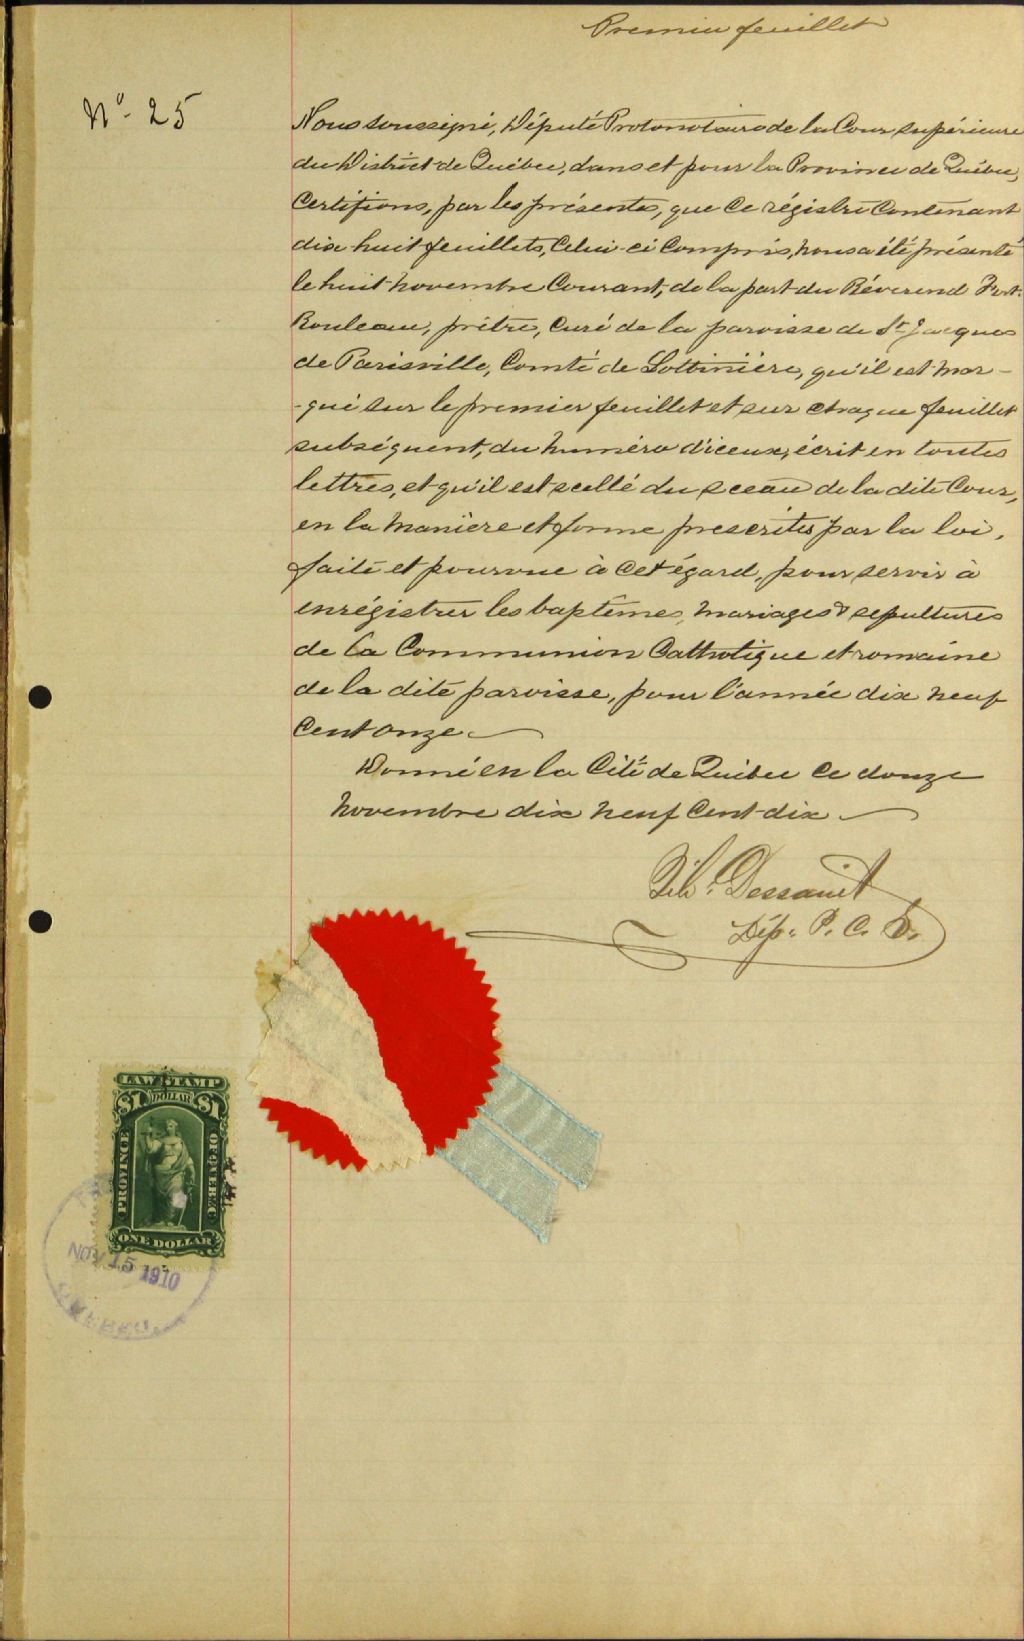 Premier feuillet
No. 25
Nous soussigné, Député Protonotaire de la Cour supérieure
du District de Québec, dans et pour la Province de Québec,
Certifions, par les présentes, que ce régistre contenant
dix-huit feuillets, celui-ci compris, nous a été présenté
le huit novembre courant, de la part du Révérend
Rouleau, prêtre, curé de la paroisse de St. Jacques
de Parisville, Comté de Lotbinière, qu'il est mar-
-qué sur le premier feuillet et sur chaque feuillet
subséquent, du numéro d'iceux, écrit en toutes
lettres, et qu'il est scellé du sceau de la dite Cour,
en la manière et forme prescrites par la loi,
faite et pourvue à cet égard, pour servir à
enrégistrer les baptêmes, mariages & sepultures
de la Communion Catholique et romaine
de la dite paroisse, pour l'année dix neuf
cent onze
Donné en la Cité de Québec ce douze
novembre dix neuf cent dix
Dessaint
Dép. P. C. S.
LAW STAMP
$1 DOLLAR $1
PROVINCE OF QUEBEC
ONE DOLLAR
NOV 15 1910
QUEBEC